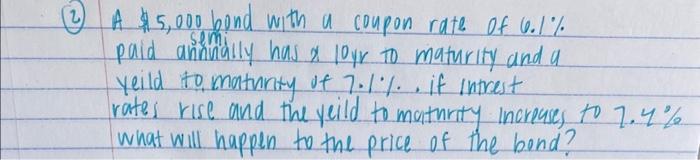 ② A $5,000 bond with a coupon rate of 6.1%
semi
paid annually has a 10yr to maturity and a
yeild to maturity of 7.1%. if intrest
rates rise and the yeild to maturity increases to 7.4%
what will happen to the price of the bond?